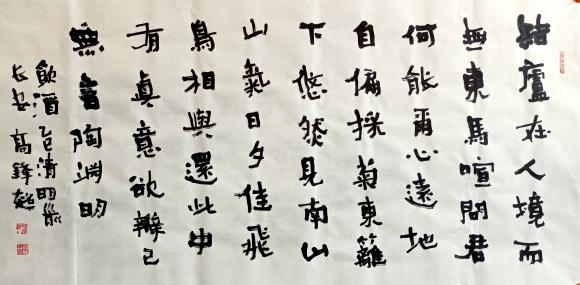 結廬在人境而
無車馬喧問君
何能爾心遠地
自偏採菊東籬
下悠然見南山
山氣日夕佳飛
鳥相與還此中
有真意欲辯已
無言陶渊明
飲酒乙巳清明前
长安高鋒